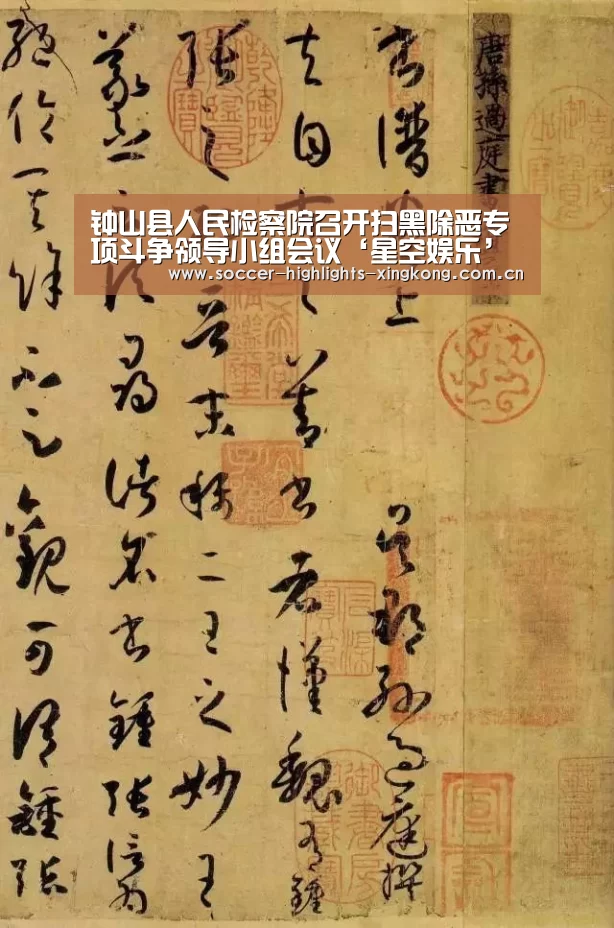 钟山县人民检察院召开扫黑除恶专
项斗争领导小组会议‘星空娱乐’
www.soccer-highlights-xingkong.com.cn
唐孫過庭書
書譜卷上 吳郡孫過庭撰
夫自古之善書者漢魏有鍾
張之晉末稱二王之妙王
羲之云頃尋諸名書鍾張信為
絕倫其餘不足觀可謂鍾張